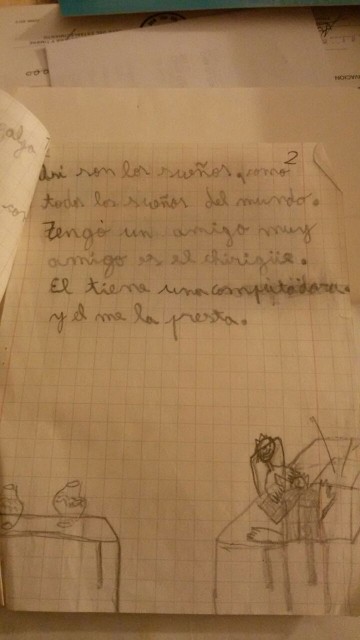 2
Asi son los sueños, como
todos los sueños del mundo.
Tengo un amigo muy
amigo es el chirigüe.
El tiene una computadora.
y el me la presta.